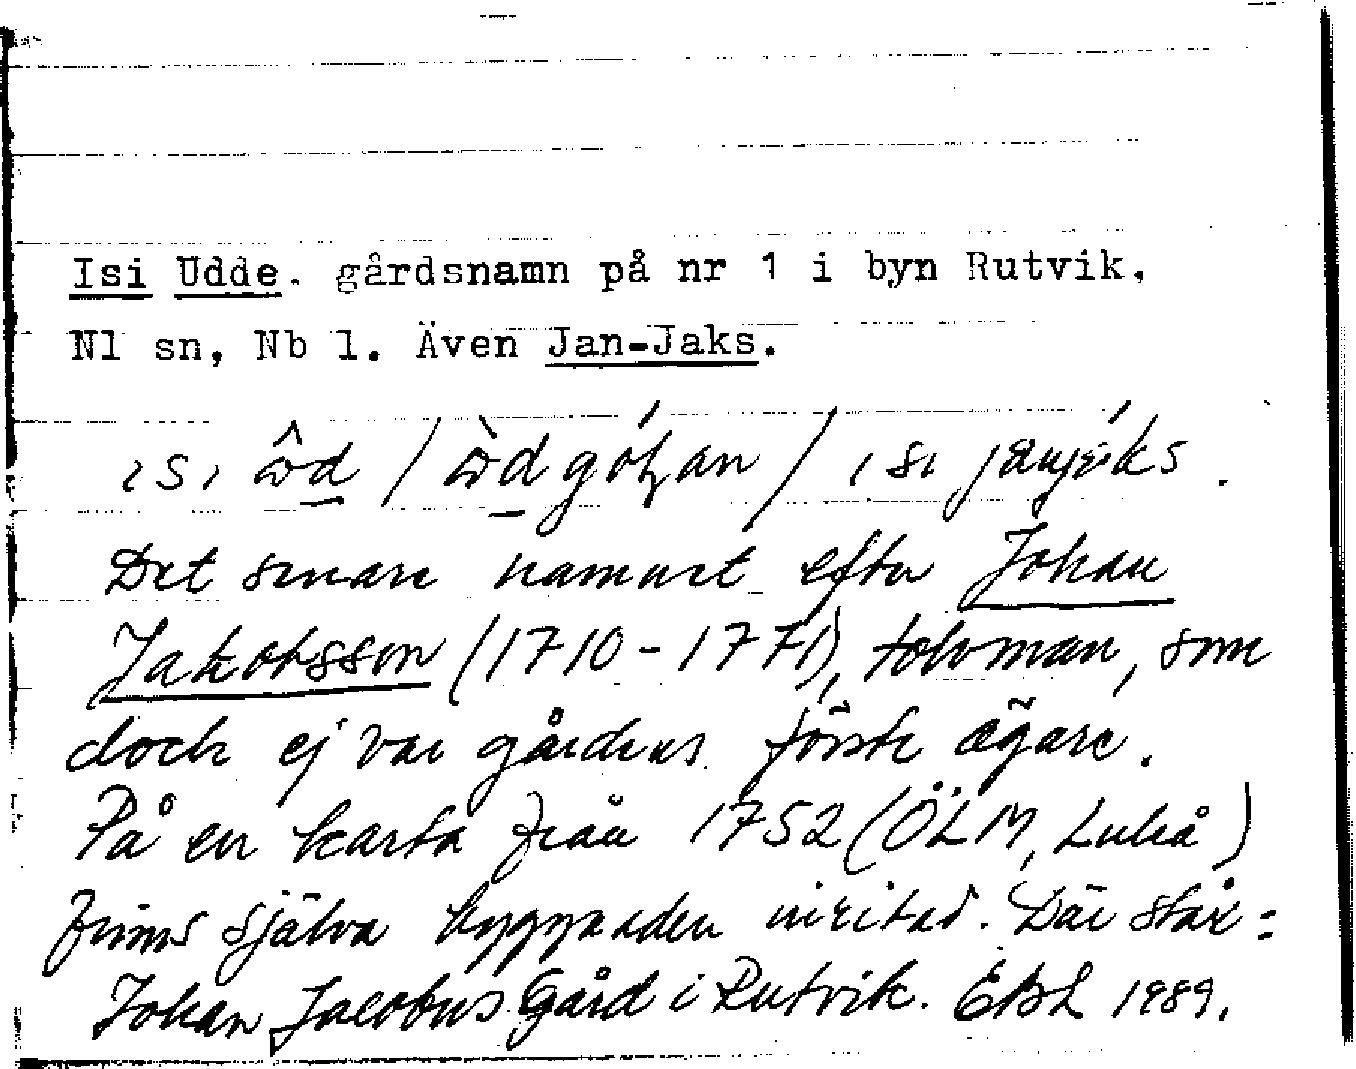 Isi Udde. gårdsnamn på nr 1 i byn Rutvik,
Nl sn, Nb l. Även Jan-Jaks.
ɪsɪ / / ɪsɪ
Det senare namnet efter Johan
Jakobsson (1710-1771), tolvman, som
dock ej var gårdens förste ägare.
På en karta från 1752 (ÖLM, Luleå)
finns själva byggnaden inritad. Där står:
Johan Jacobus Gård i Rutvik. EBL 1989.